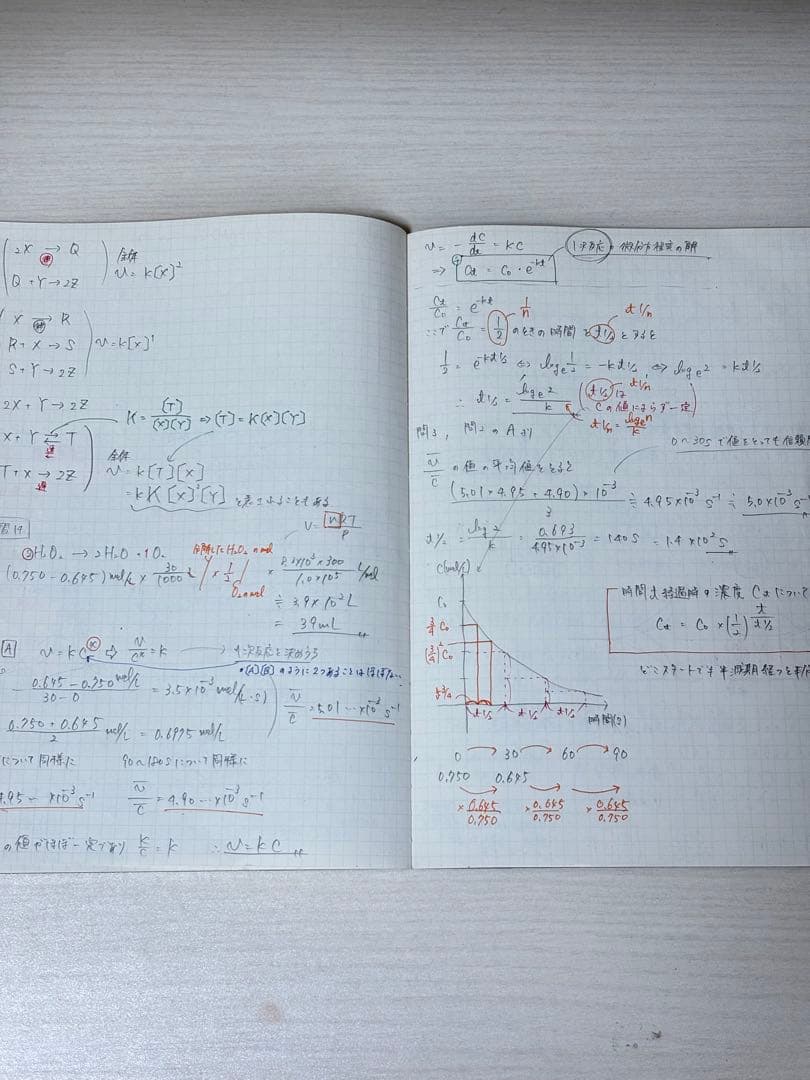 2X → Q
遅
Q + Y → 2Z
全体
v = k[X]²
X → R
遅
R + X → S
S + Y → 2Z
v = k[X]¹
2X + Y → 2Z
X + Y ⇄ T
速
T + X → 2Z
遅
K = [T]/[X][Y] ⇒ [T] = K[X][Y]
全体
v = k[T][X]
= kK[X]²[Y] と表せることもある
V = nRT/P
②H₂O₂ → 2H₂O + O₂
分解したH₂O₂ n mol
(0.750 - 0.645) mol/L × 30/1000 L × 1/2 × 8.3×10³×300/1.0×10⁵ L/mol
O₂ n mol
≒ 3.9×10⁻² L
= 39mL
[A] v = kCˣ ⇨ v/Cˣ = k → 1次反応を決めうち
•[A][B]のように2つあることはほぼない
0.645 - 0.750 mol/L / 30-0 = 3.5×10⁻³ mol/(L·s)
v̄/c̄ = 5.01…×10⁻³ s⁻¹
0.750 + 0.645 / 2 mol/L = 0.6975 mol/L
について同様に 90〜120sについて同様に
4.95…×10⁻³ s⁻¹ v̄/c̄ = 4.90…×10⁻³ s⁻¹
の値がほぼ一定であり k/c = k ∴ v = kC
v = - dC/dt = kC 1次反応の微分方程式の解
⇒ Ct = C₀・e⁻ᵏᵗ
Ct/C₀ = e⁻ᵏᵗ 1/n t1/n
ここで Ct/C₀ = 1/2 のときの時間をt1/2とすると
1/2 = e^-kt1/2 ⇔ logₑ1/2 = -kt1/2 ⇔ logₑ2 = kt1/2
t1/n
∴ t1/2 = logₑ2/k (t1/2は Cの値によらず一定)
t1/n = logₑn/k
問3, 問2のAより
0〜30sで値をとっても
v̄/c̄ の値の平均値をとると
(5.01 + 4.95 + 4.90)×10⁻³/3 ≒ 4.95×10⁻³ s⁻¹ ≒ 5.0×10⁻³ s⁻¹
t1/2 = log2/k = 0.693/4.95×10⁻³ = 140s = 1.4×10² s
C(mol/L)
C₀
3/4 C₀
(3/4)² C₀
t3/4
t1/2 t1/2 t1/2
時間(s)
時間t経過時の濃度 Ctについて
Ct = C₀ × (1/2)^t/t1/2
どこスタートでも半減期経つと半
0 30 60 90
0.750 0.645
× 0.645/0.750 × 0.645/0.750 × 0.645/0.750